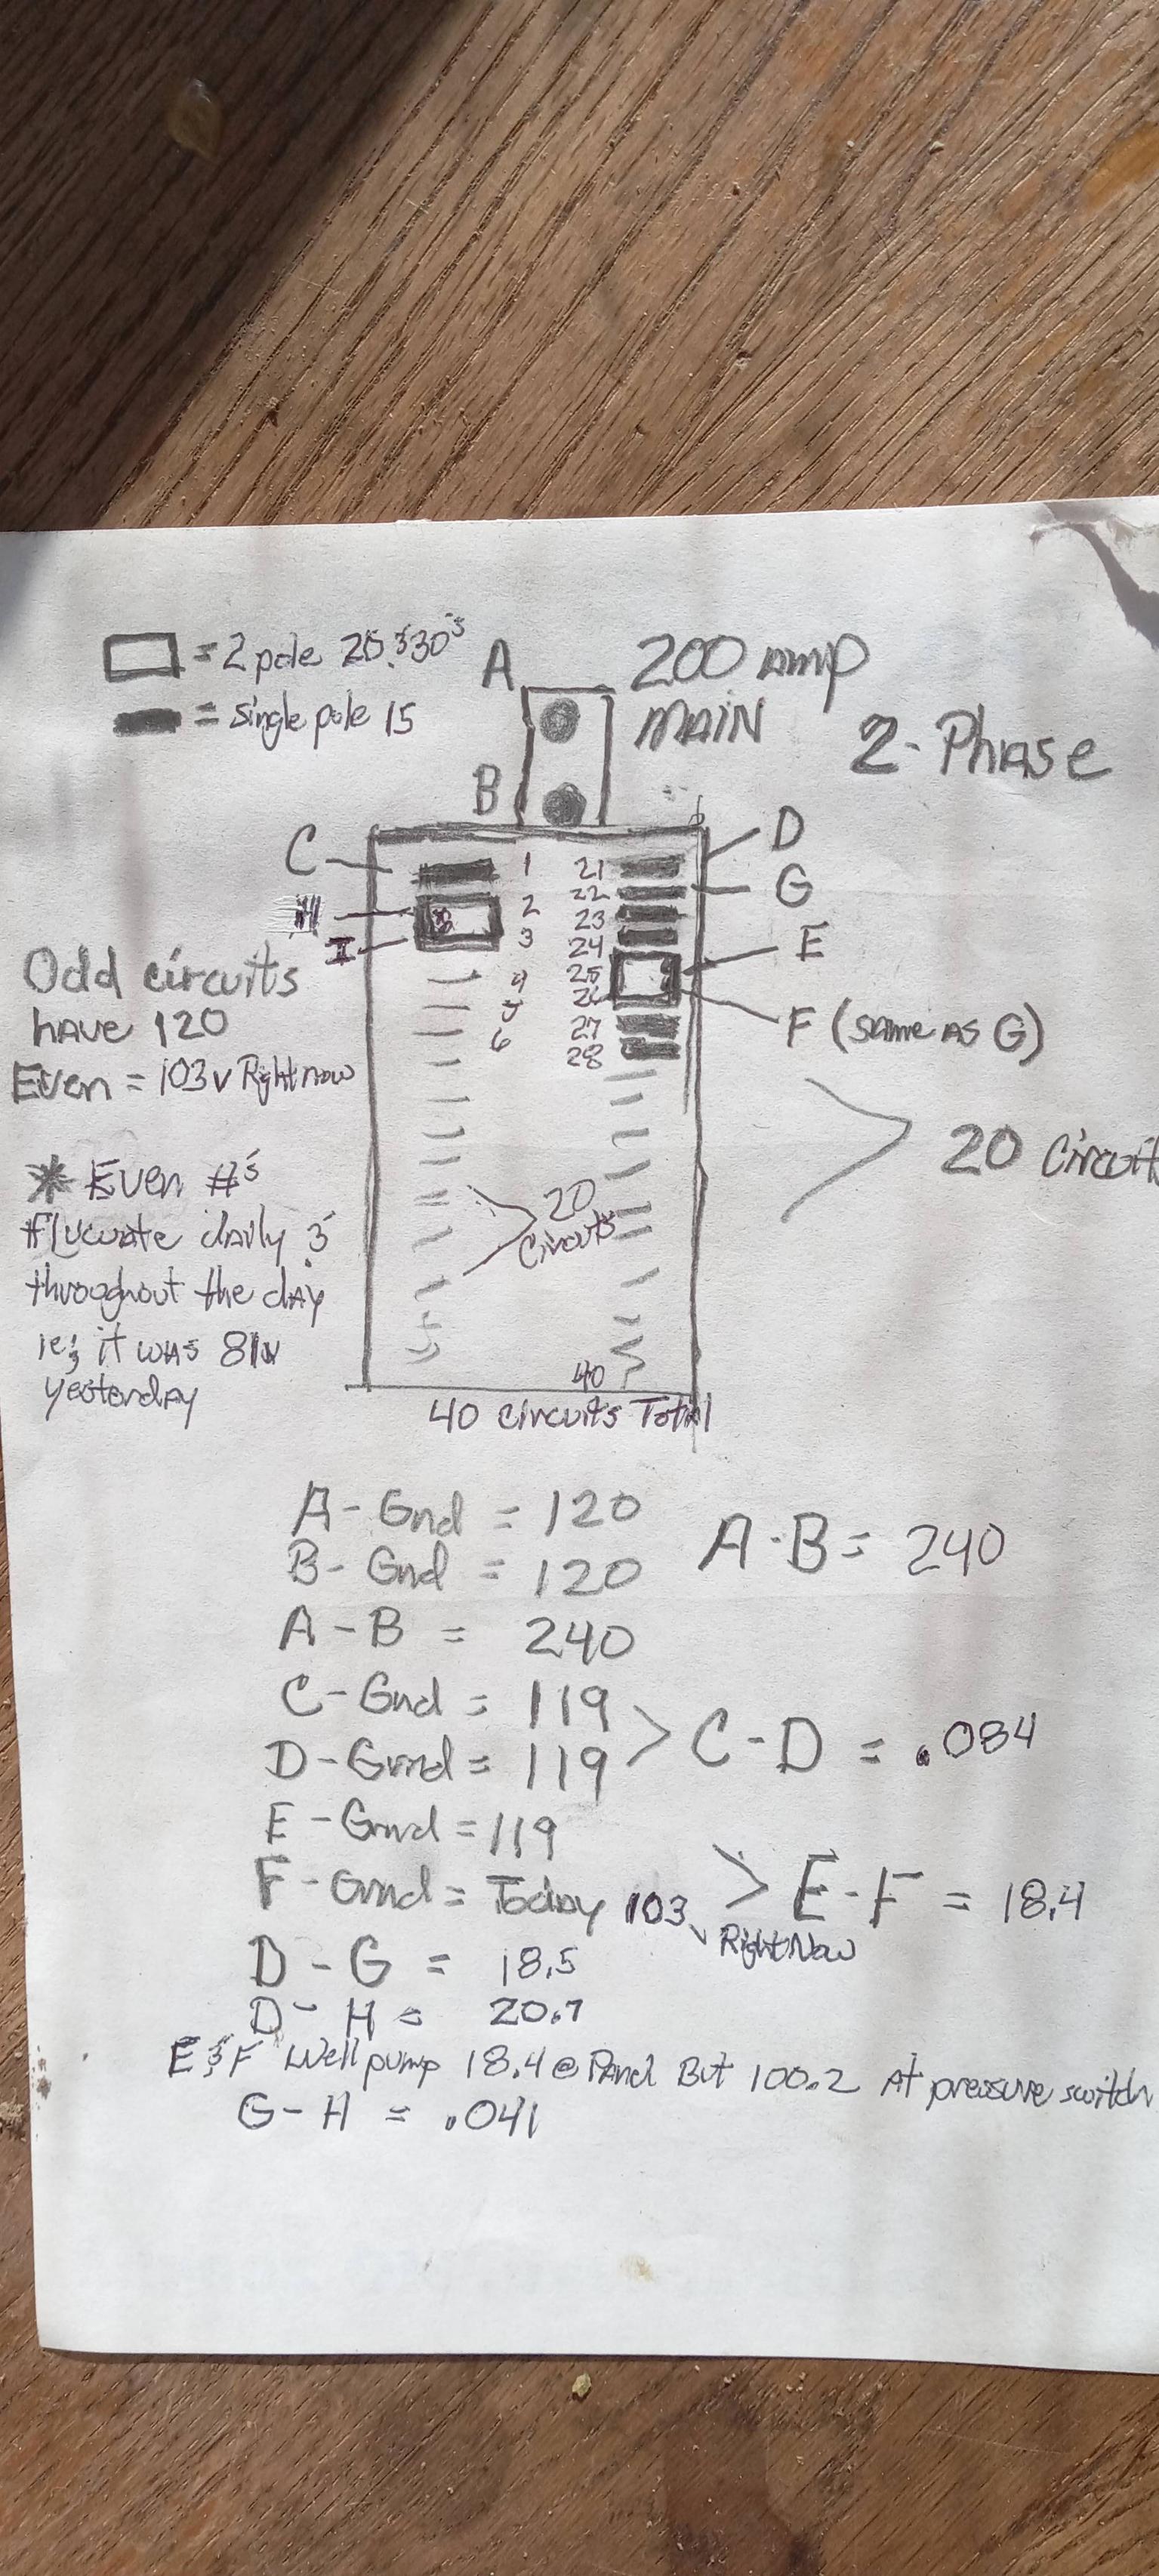 = 2 pole 20's & 30's
= single pole 15
A
200 amp
MAIN
2-Phase
B
C
D
G
H
I
E
F (same as G)
1
2
3
4
5
6
21
22
23
24
25
26
27
28
Odd circuits
have 120
Even = 103v Right now
* Even #'s
flucuate daily &
throughout the day
ie; it was 81v
yesterday
20
Circuits
20 Circuit
40
40 circuits Total
A - Gnd = 120
B - Gnd = 120
A - B = 240
A - B = 240
C - Gnd = 119
D - Grnd = 119
> C - D = .084
E - Grnd = 119
F - Grnd = Today 103v Right Now
> E - F = 18.4
D - G = 18.5
D - H = 20.7
E & F Well pump 18.4 @ Panel But 100.2 At pressure switch
G - H = .041